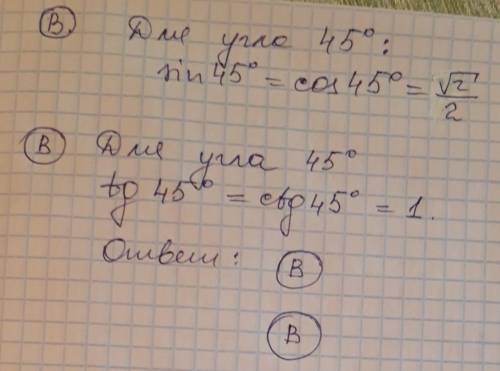 В. Для угла 45°:
sin 45° = cos 45° = √2/2
В Для угла 45°
tg 45° = ctg 45° = 1.
Ответ: В
В